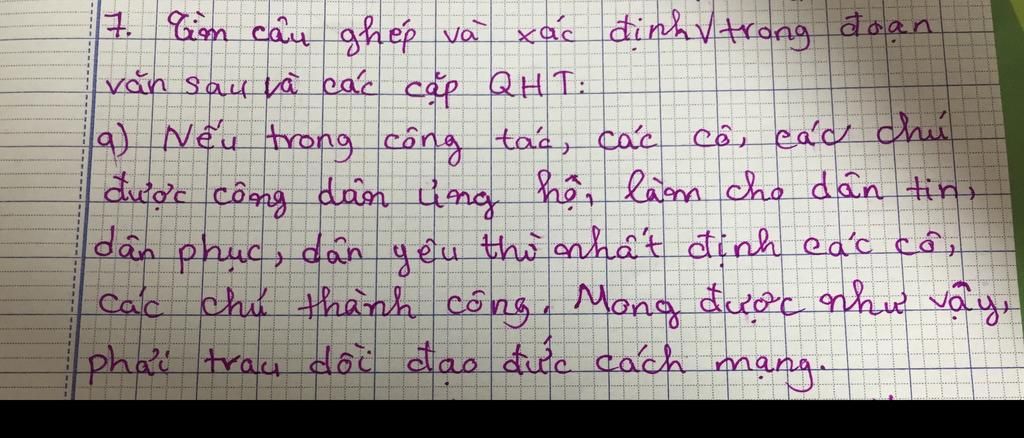 7. Tìm câu ghép và xác định V trong đoạn
văn sau và các cặp QHT:
a) Nếu trong công tác, các cô, các chú
được công dân ủng hộ, làm cho dân tin,
dân phục, dân yêu thì nhất định các cô,
các chú thành công. Mong được như vậy,
phải trau dồi đạo đức cách mạng.